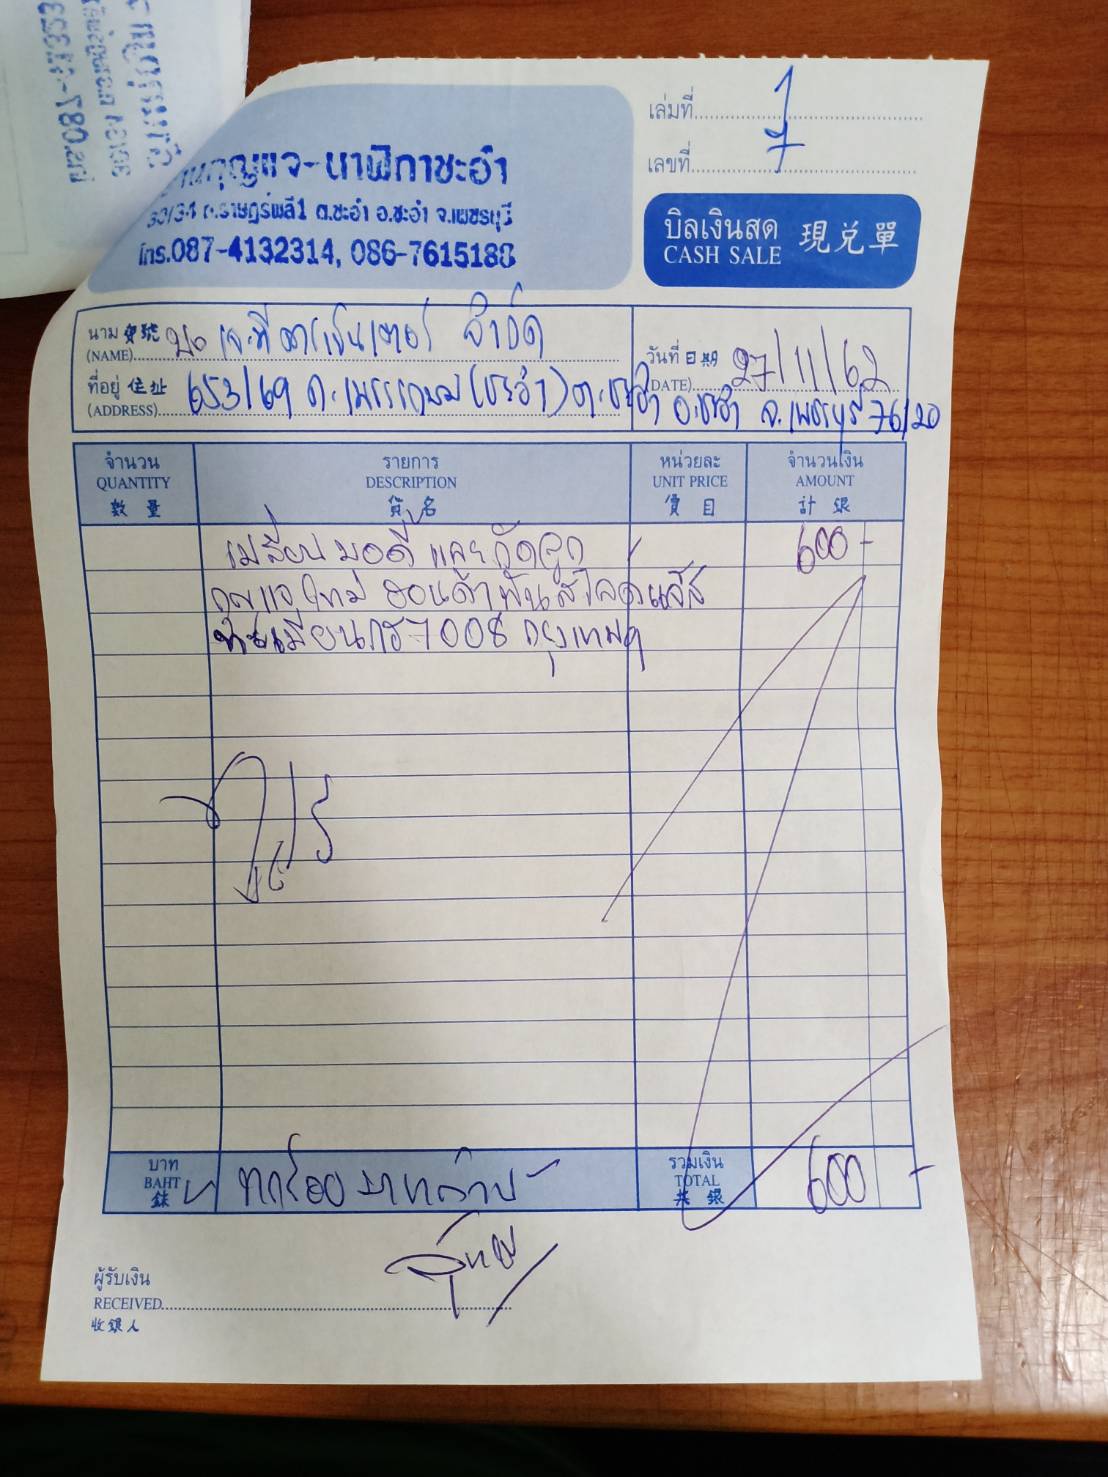 780.
กุญแจ-นาฬิกาชะอำ
ถ.ราษฎร์พลี1 ต.ชะอำ อ.ชะอำ จ.เพชรบุรี
โทร.087-4132314, 086-7615188
เล่มที่ 1
เลขที่ 7
บิลเงินสด 現兌單
CASH SALE
นาม 寶號
(NAME) จำกัด
วันที่ 日期 27/11/62
(DATE)
ที่อยู่ 住址
(ADDRESS) 653/69 ถ.เพชรเกษม (ชะอำ) ต.ชะอำ อ.ชะอำ จ.เพชรบุรี 76120
จำนวน รายการ หน่วยละ จำนวนเงิน
QUANTITY DESCRIPTION UNIT PRICE AMOUNT
數量 貨名 價目 計銀
เปลี่ยน และ กัดลูก 600 -
กุญแจใหม่ ฮอนด้า
ทะเบียน 7008 กรุงเทพฯ
บาท รวมเงิน
BAHT หกร้อยบาทถ้วน TOTAL 600 -
銖 共銀
ผู้รับเงิน
RECEIVED
收銀人